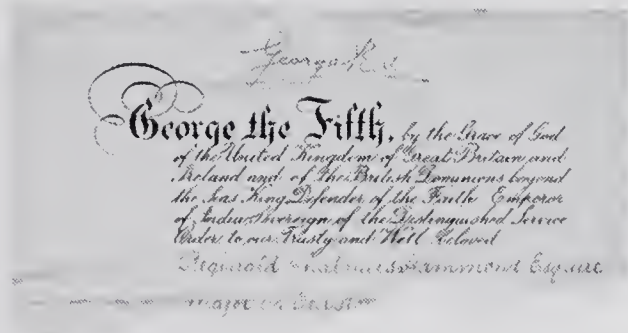 George R. I.
George the Fifth, by the Grace of God
of the United Kingdom of Great Britain and
Ireland and of the British Dominions beyond
the Seas King Defender of the Faith Emperor
of India Sovereign of the Distinguished Service
Order to our Trusty and Well Beloved
Reginald Hammond Esquire
Major in Our